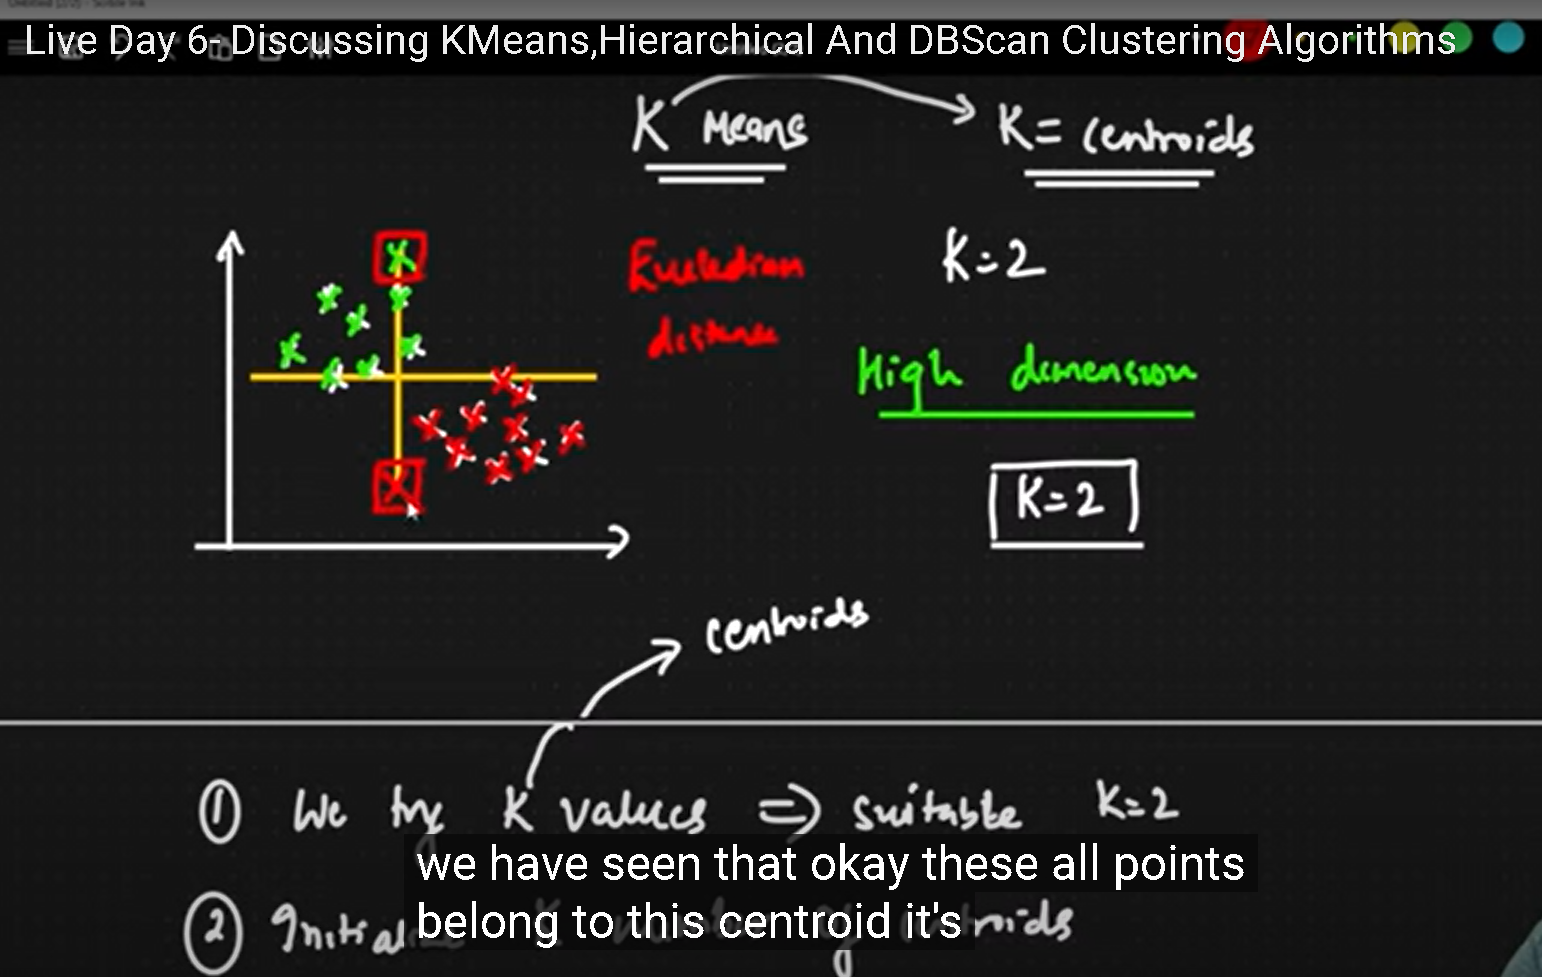 Live Day 6- Discussing KMeans,Hierarchical And DBScan Clustering Algorithms
K Means
K= Centroids
Eucledian
distance
K=2
High dimension
K=2
centroids
① We try K values => suitable K=2
we have seen that okay these all points
belong to this centroid it's
②